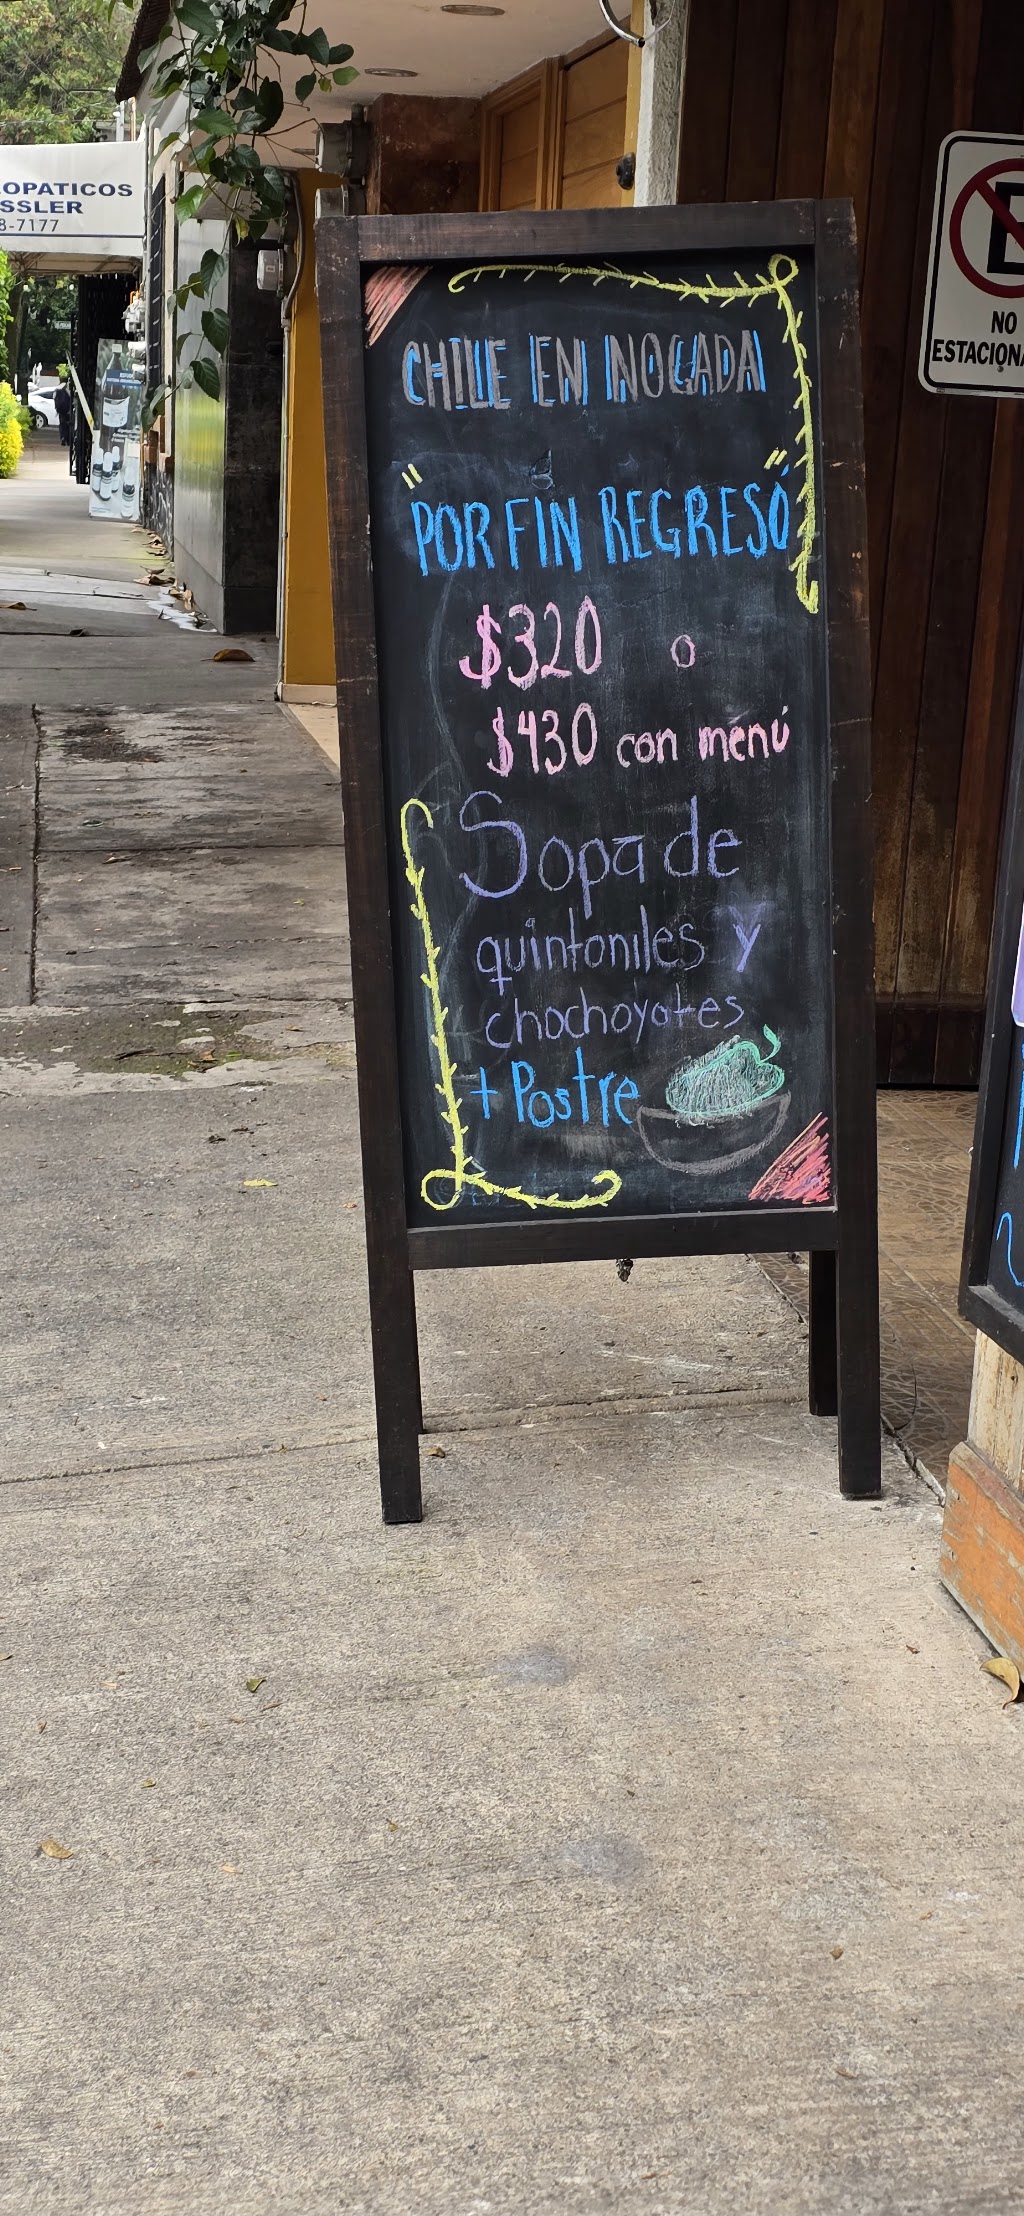 OPATICOS
SSLER
8-7177
NO
ESTACIONA
CHILE EN NOGADA
"POR FIN REGRESÓ"
$320 o
$430 con menú
Sopa de
quintoniles y
chochoyotes
+ Postre